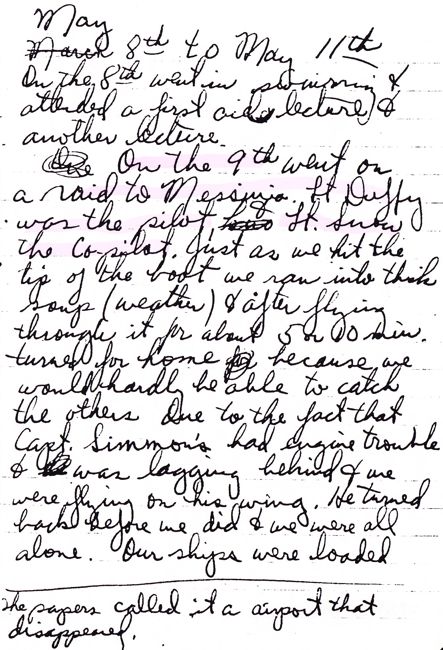 May
March 8th to May 11th
On the 8th went in swimming &
attended a first aid lecture, &
another lecture.
On the 9th went on
a raid to Messinia. Lt Duffy
was the pilot, & Lt. Snow
the Co-pilot. Just as we hit the
tip of the boot we ran into thick
soup (weather) & after flying
through it for about 5 or 10 min.
turned for home because we
would hardly be able to catch
the others Due to the fact that
Capt. Simmon's had engine trouble
& was lagging behind & we
were flying on his wing. He turned
back before we did & we were all
alone. Our ships were loaded
The papers called it a airport that
disappeared.